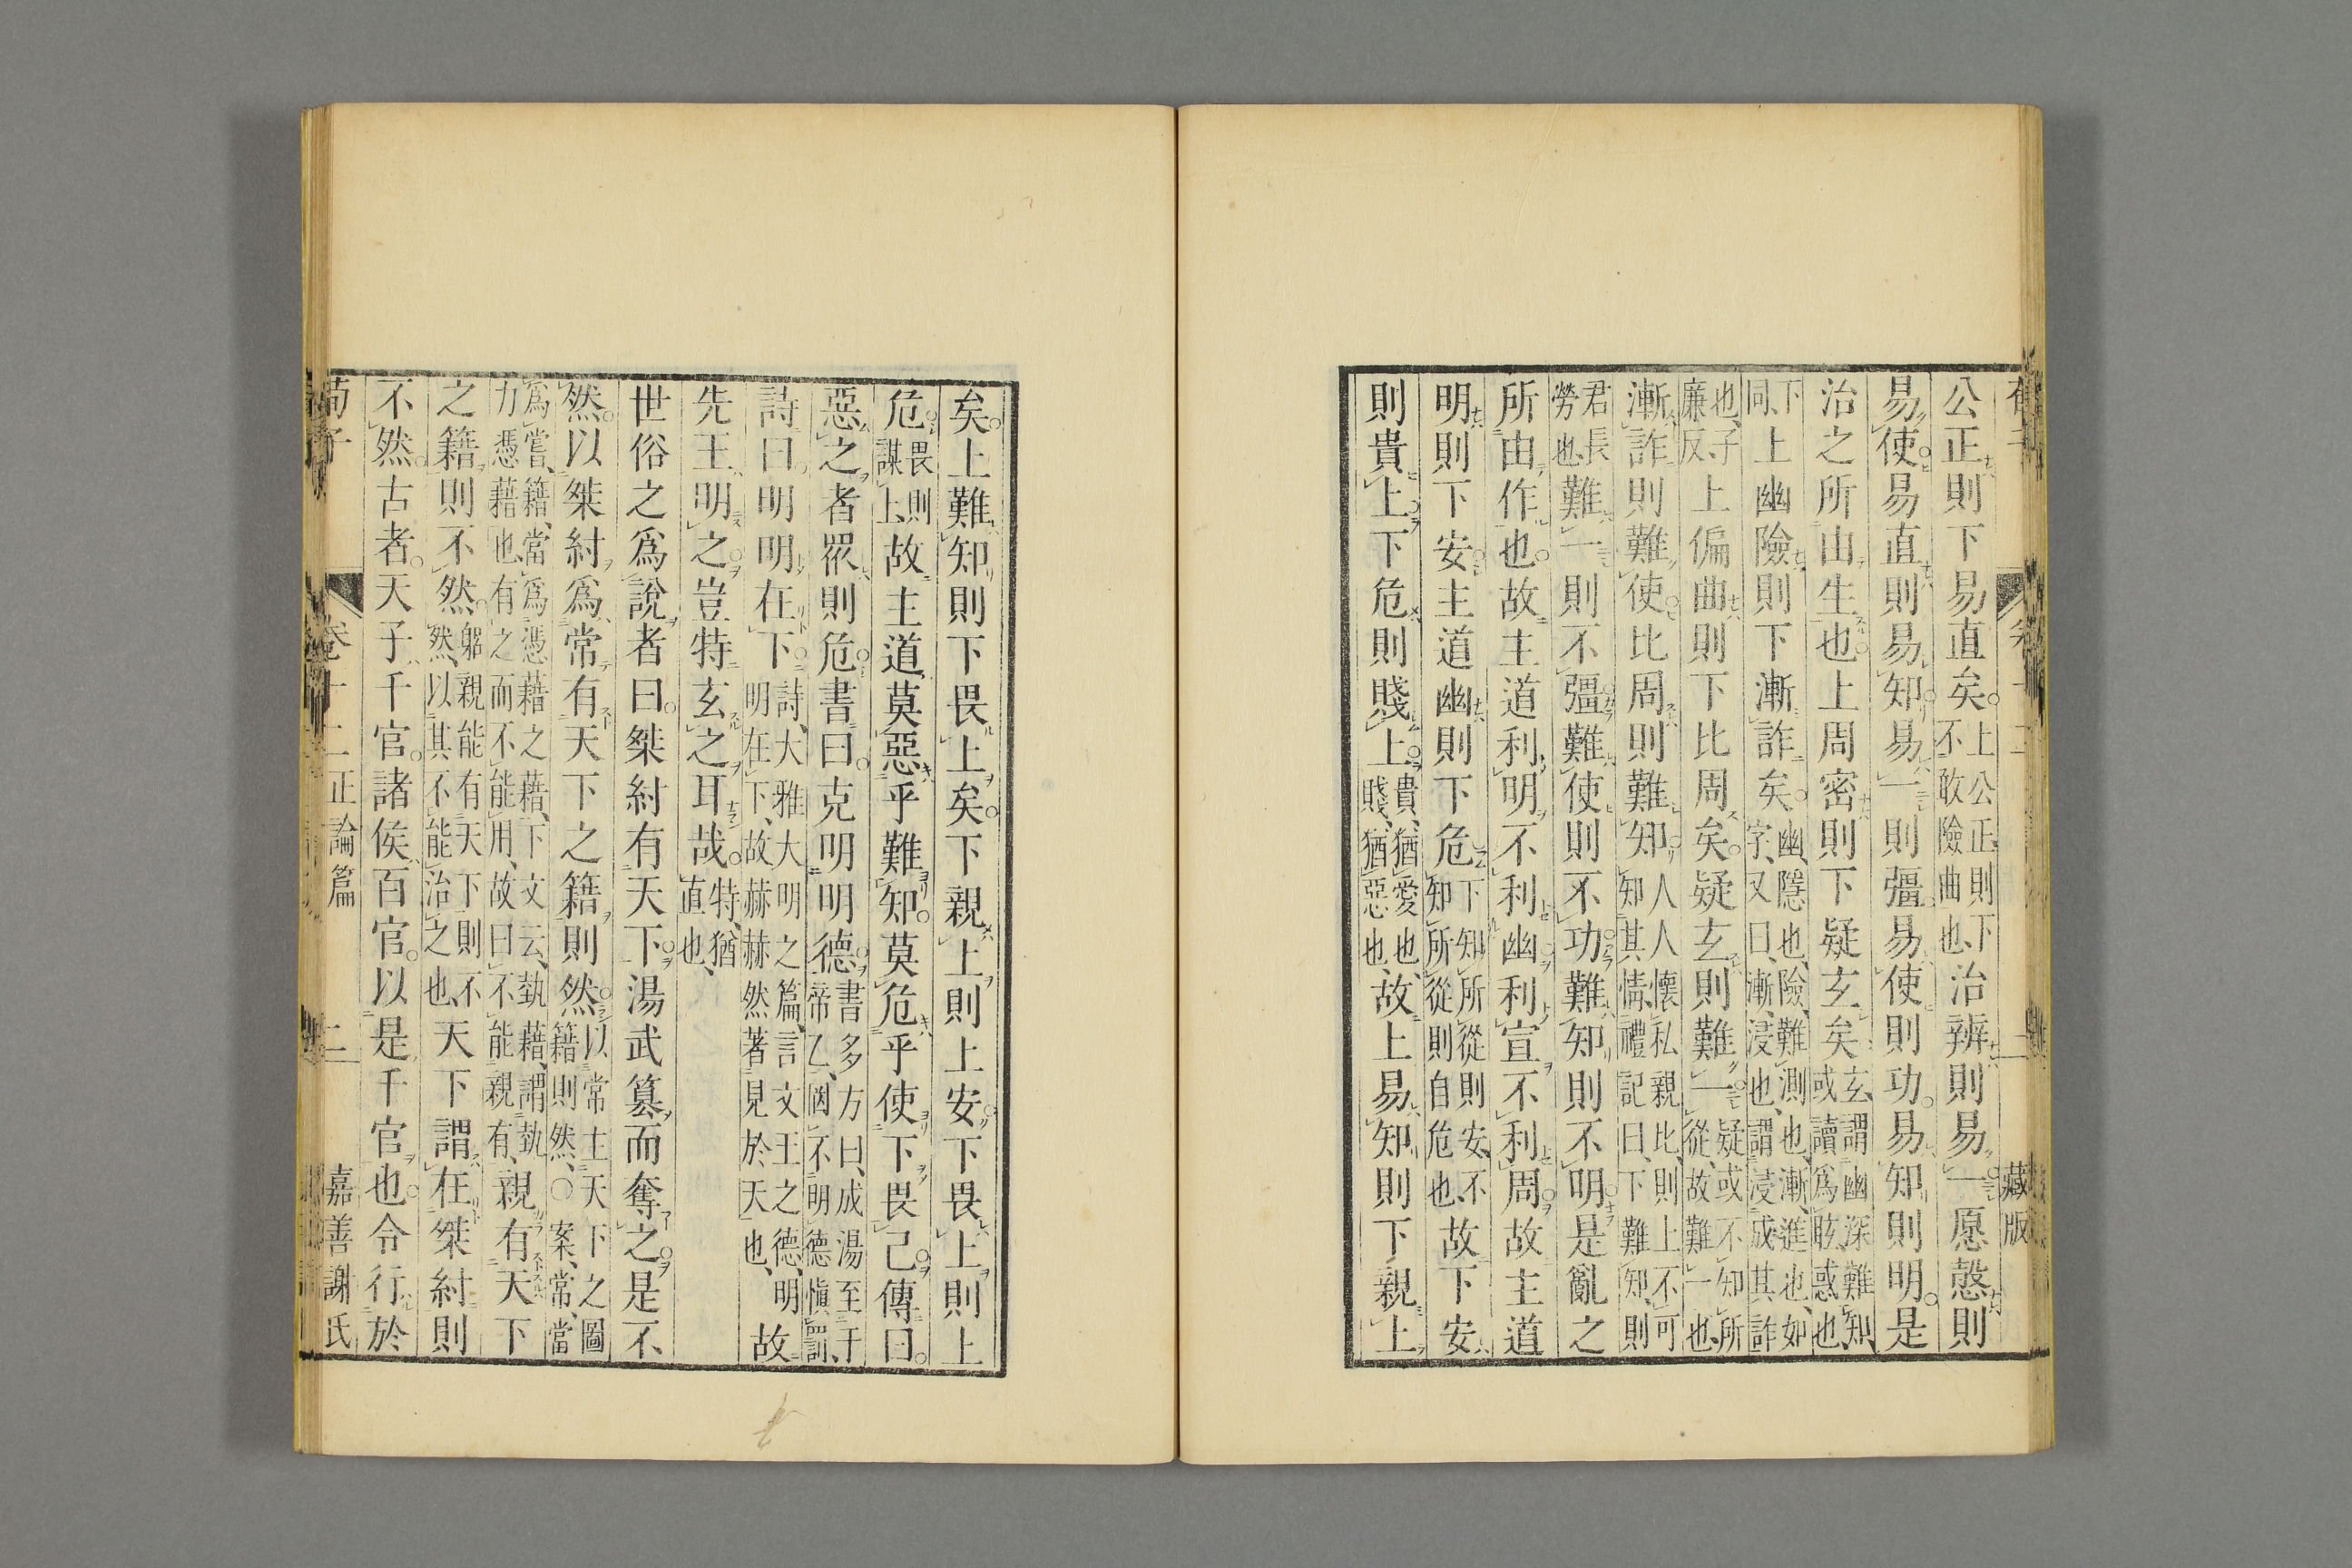 公正則下易直矣上公正則下不敢險曲也治辨則易一愿愨則
易使易直則易知易一則彊易使則功易知則明是
治之所由生也上周密則下疑玄矣玄謂幽深難知或讀爲眩惑也
下同上幽險則下漸詐矣幽隱也險難測也漸進也如字又曰漸浸也謂浸成其詐
也子廉反上偏曲則下比周矣疑玄則難一疑或不知所從故難一也
漸詐則難使比周則難知人人懷私親比則上不可知其情禮記曰下難知則
君長勞也難一則不彊難使則不功難知則不明是亂之
所由作也故主道利明不利幽利宣不利周故主道
明則下安主道幽則下危下知所從則安不知所從則自危也故下安
則貴上下危則賤上貴猶愛也賤猶惡也故上易知則下親上
矣上難知則下畏上矣下親上則上安下畏上則上
危畏則謀上故主道莫惡乎難知莫危乎使下畏己傳曰
惡之者眾則危書曰克明明德書多方曰成湯至于帝乙罔不明德慎罰
詩曰明明在下詩大雅大明之篇言文王之德明明在下故赫赫然著見於天也故
先王明之豈特玄之耳哉特猶直也
世俗之爲說者曰桀紂有天下湯武篡而奪之是不
然以桀紂爲常有天下之籍則然以常主天下之圖籍則然○案常當
爲嘗籍當爲憑藉之藉下文云執藉謂執力憑藉也有之而不能用故曰不能親有親有天下
之籍則不然躬親能有天下則不然以其不能治之也天下謂在桀紂則
不然古者天子千官諸侯百官以是千官也令行於
荀子 卷十二正論篇 二 嘉善謝氏
藏版